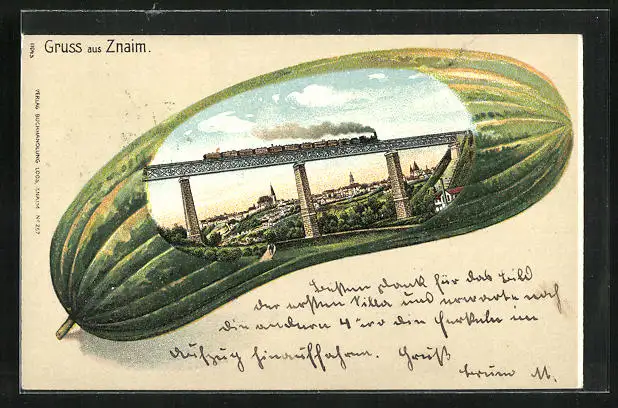 Gruss aus Znaim.
11043
VERLAG BUCHHANDLUNG LOOS, ZNAIM Nº 257
Besten Dank für das Bild
der ersten Villa und erwarte noch
die andern 4 wo die Ferkeln im
Aufzug hinauffahren. Gruß
M.